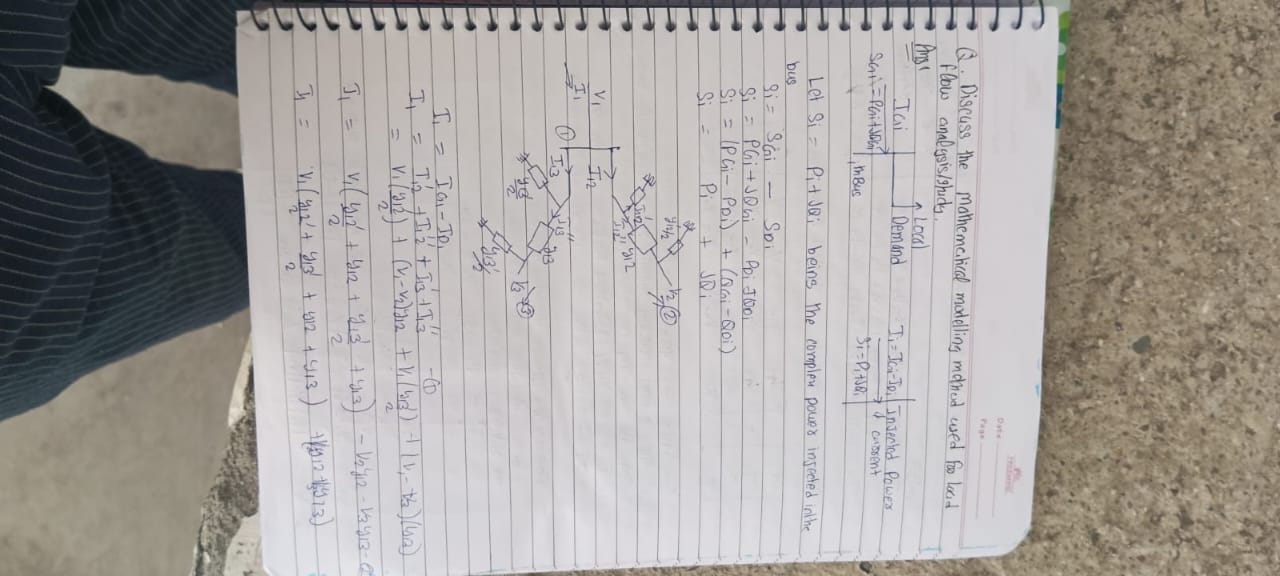 Date
Page
Q. Discuss the mathematical modelling method used for load
flow analysis/study.
Ans:
Local
IGi
Demand
Ii = IGi - IDi
Injected Power
SGi = PGi + JQGi
ith Bus
Si = Pi + JQi
current
Let Si = Pi + JQi being the complex power injected in the
bus
Si = SGi - SDi
Si = PGi + JQGi - PDi JQDi
Si = (PGi - PDi) + (QGi - QDi)
Si = Pi + JQi
y12/2
V2 ②
I12'
I12'' y12
V1
I12
I1
①
I13
I13''
y13
y13'/2
V3 ③
y13'/2
I1 = IG1 - ID1
I1 = I12' + I12'' + I13' + I13'' - ①
= V1(y12'/2) + (V1 - V2)y12 + V1(y13'/2) + (V1 - V3)(y13)
I1 = V1(y12'/2 + y12 + y13'/2 + y13) - V2y12 - V3y13 - ②
I1 = V1(y12'/2 + y13'/2 + y12 + y13)